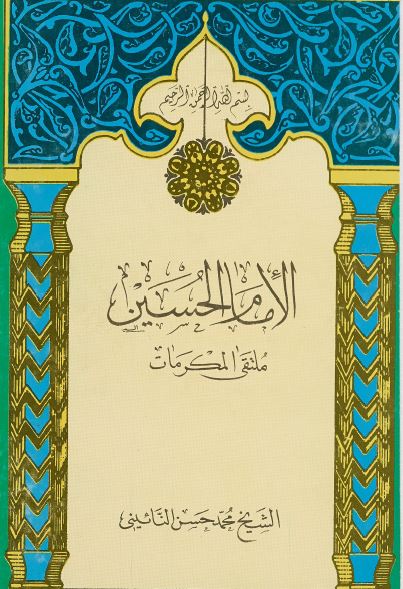 بسم الله الرحمن الرحيم
الإمام الحسين
ملتقى المكرمات
الشيخ محمد حسن النائيني